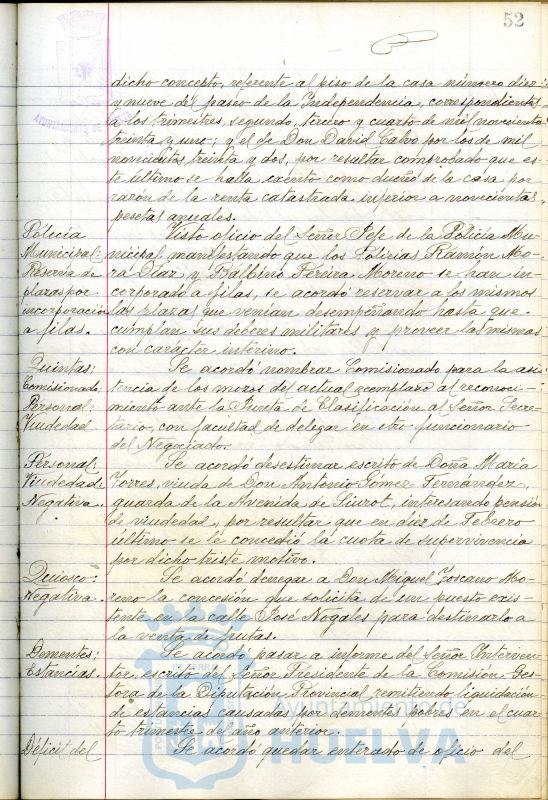 52
dicho concepto, referente al piso de la casa número diez
y nueve del paseo de la Independencia, correspondientes
a los trimestres, segundo, tercero y cuarto de mil novecientos
treinta y uno; y el de Don David Calvo por los de mil
novecientos treinta y dos, por resultar comprobado que es-
te último se halla exento como dueño de la casa por
razón de la renta catastrada inferior a novecientas
pesetas anuales.
Policía Municipal: Reserva de plazas por incorporación a filas.
Visto oficio del Señor Jefe de la Policía Mu-
nicipal manifestando que los Policias Ramón Mo-
ra Diaz y Balbino Pereira Moreno se han in-
corporado a filas, se acordó reservar a los mismos
las plazas que venían desempeñando hasta que
cumplan sus deberes militares y proveer las mismas
con carácter interino.
Quintas: Comisionado;
Personal: Viudedad
Se acordó nombrar Comisionado para la asis-
tencia de los mozos del actual reemplazo al reconoci-
miento ante la Junta de Clasificación al Señor Secre-
tario, con facultad de delegar en otro funcionario
del Negociado.
Personal: Viudedad: Negativa.
Se acordó desestimar escrito de Doña María
Torres, viuda de Don Antonio Gómez Fernández,
guarda de la Avenida de Siurot, interesando pensión
de viudedad, por resultar que en diez de Febrero
último se le concedió la cuota de supervivencia
por dicho triste motivo.
Quiosco: Negativa.
Se acordó denegar a Don Miguel Toscano Mo-
reno la concesión que solicita de un puesto exis-
tente en la calle José Nogales para destinarlo a
la venta de frutas.
Dementes: Estancias.
Se acordó pasar a informe del Señor Interven-
tor, escrito del Señor Presidente de la Comisión Ges-
tora de la Diputación Provincial remitiendo liquidación
de estancias causadas por dementes pobres en el cuar-
to trimestre del año anterior.
Déficit del
Se acordó quedar enterado de oficio del
Ayuntamiento de
HUELVA